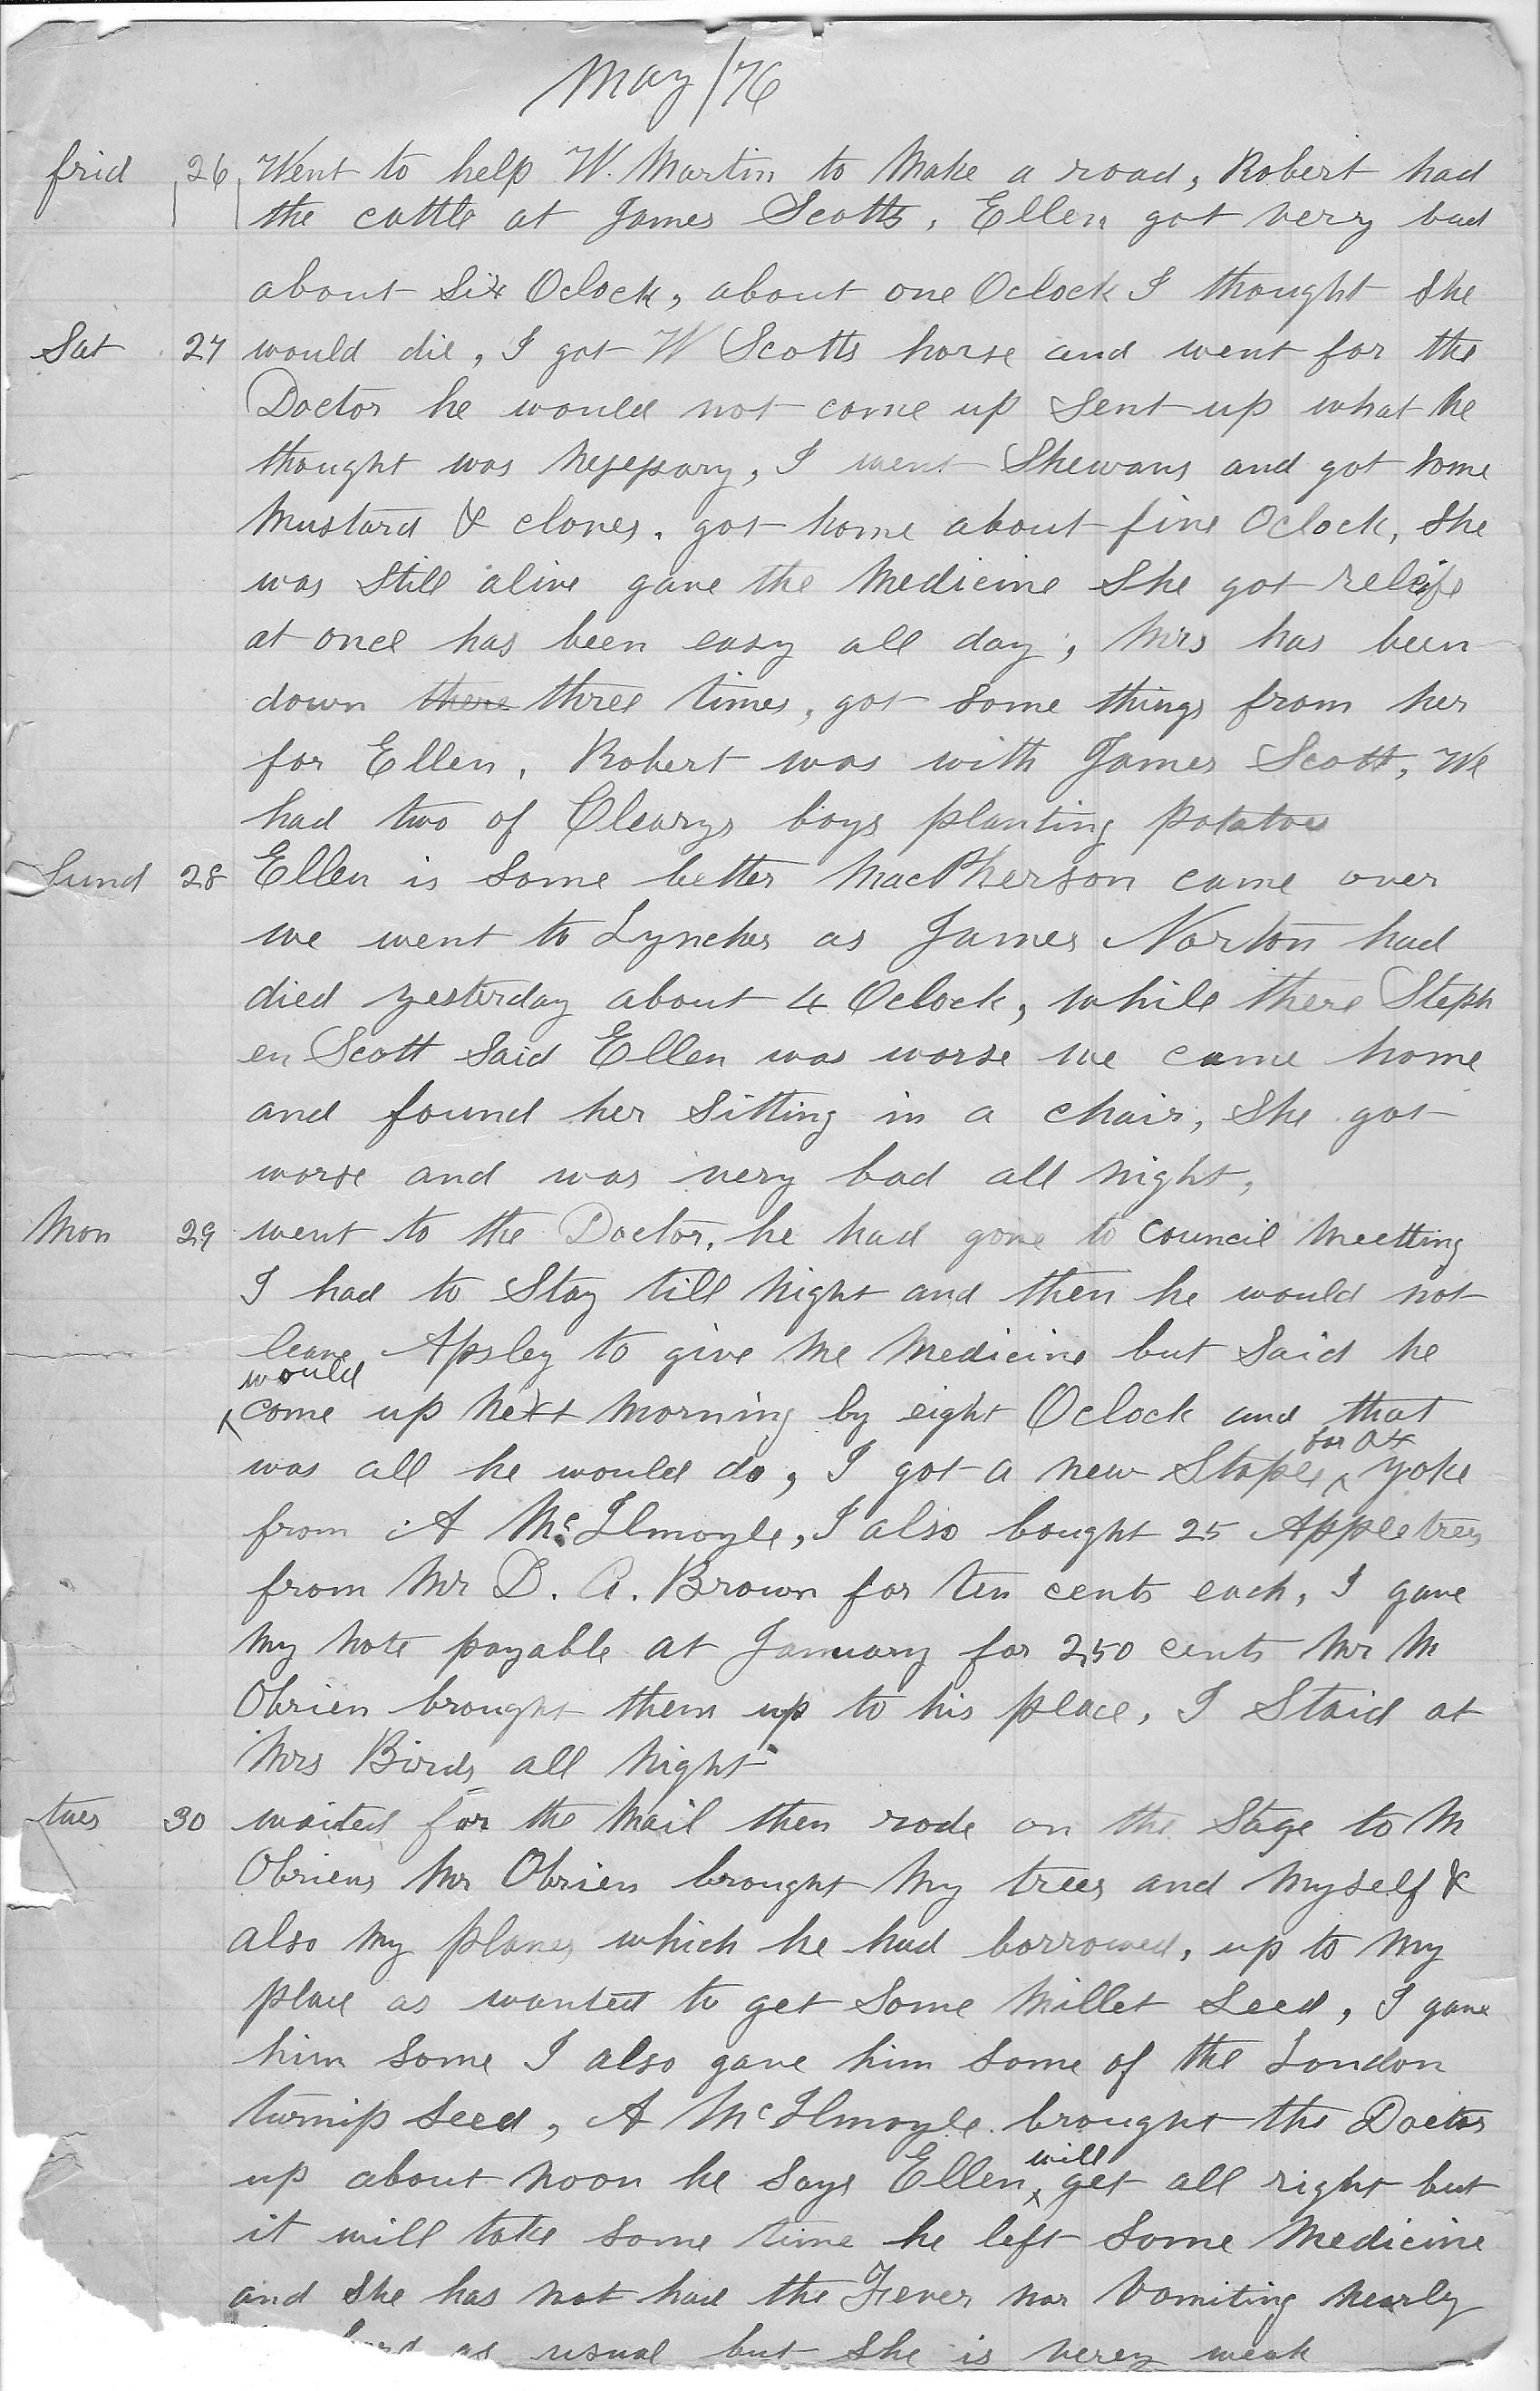 May /76
frid 26 Went to help W. Martin to Make a road, Robert had
the cattle at James Scotts, Ellen got very bad
about Six Oclock, about one Oclock I thought She
Sat 27 would die, I got W Scotts horse and went for the
Doctor he would not come up Sent up what he
thought was nessessary, I went Shewans and got some
Mustard & cloves. got home about five Oclock, She
was Still alive gave the Medicine She got releife
at once has been easy all day, Mrs has been
down there three times, got Some things from her
for Ellen, Robert was with James Scott, We
had two of Clearys boys planting potatoes
Sund 28 Ellen is Some better MacPherson came over
we went to Lynches as James Norton had
died yesterday about 4 Oclock, while there Steph
en Scott Said Ellen was worse we came home
and found her Sitting in a chair, She got
worse and was very bad all night,
Mon 29 went to the Doctor, he had gone to council Meetting
I had to Stay till Night and then he would not
leave Apsley to give Me Medicine but Said he
would
come up Next Morning by eight Oclock and that
for ox
was all he would do, I got a new Staple yoke
from A McIlmoyle, I also bought 25 Appletrees
from Mr D. A. Brown for ten cents each, I gave
My Note payable at January for 2,50 cents Mr M
Obrien brought them up to his place, I Staid at
Mrs Birds all Night
tues 30 waited for the Mail then rode on the Stage to M
Obriens Mr Obrien brought My trees and Myself &
also My planes which he had borrowed, up to My
place as wanted to get Some Millet Seed, I gave
him Some I also gave him Some of the London
turnip Seed, A McIlmoyle brought the Doctor
will
up about Noon he Says Ellen get all right but
it will take Some time he left Some Medicine
and She has not had the Fever nor Vomiting Nearly
hard as usual but She is verey weak